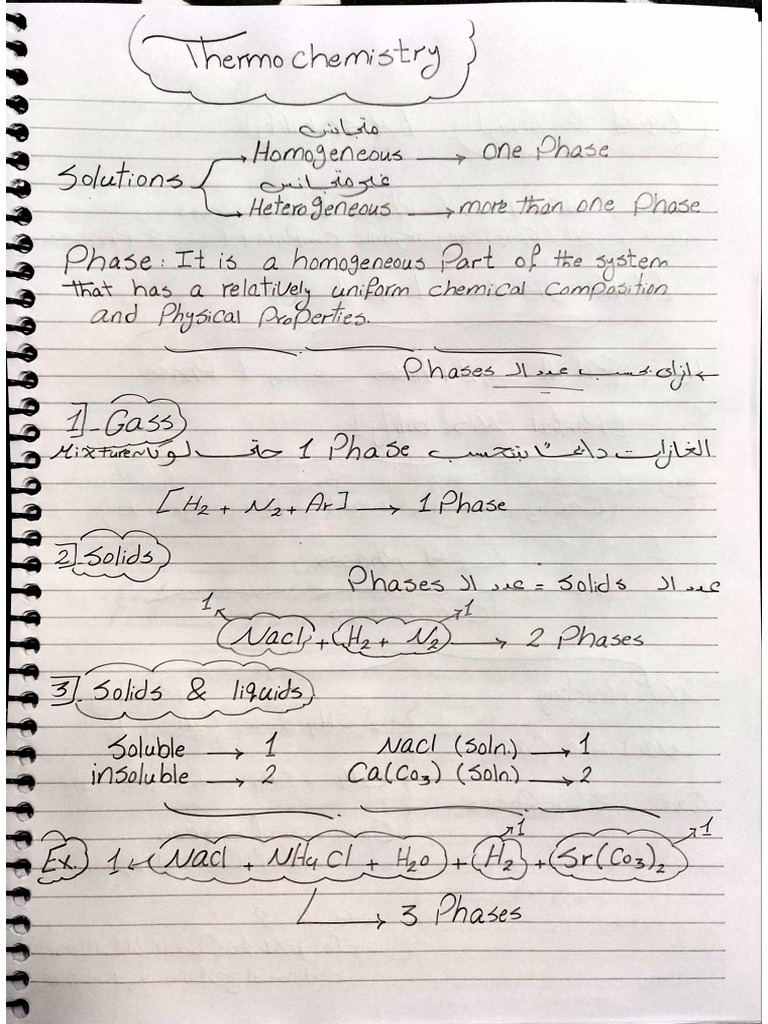 Thermochemistry
متجانس
Homogeneous → one Phase
Solutions
غير متجانس
Heterogeneous → more than one Phase
Phase: It is a homogeneous Part of the system
that has a relatively uniform chemical Composition
and Physical Properties.
← ازاى بحسب عدد ال Phases
1]- Gass
الغازات دائمًا بتتحسب 1 Phase حتى لو كانت Mixture
[H₂ + N₂ + Ar] → 1 Phase
2] Solids
عدد ال Solids = عدد ال Phases
1 1
NaCl + H₂ + N₂ → 2 Phases
3] Solids & liquids
Soluble → 1 NaCl (Soln.) → 1
insoluble → 2 Ca(Co₃) (Soln.) → 2
1 1
Ex. 1 ← NaCl + NH₄Cl + H₂O + H₂ + Sr(Co₃)₂
→ 3 Phases